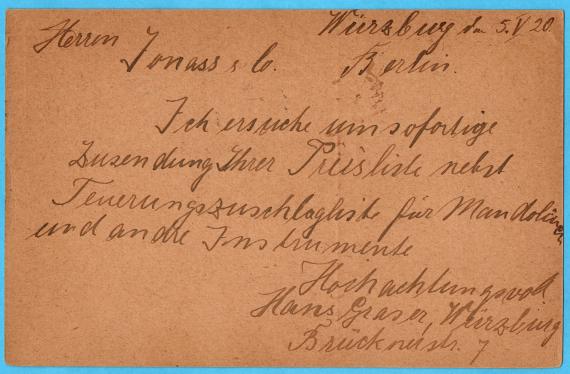 Würzburg den 5. V 20.
Herren
Jonass & Co. Berlin.
Ich ersuche um sofortige
Zusendung Ihrer Preisliste nebst
Teuerungszuschlagliste für Mandolinen
und andre Instrumente
Hochachtungsvoll
Hans Graser, Würzburg
Brücknerstr. 7